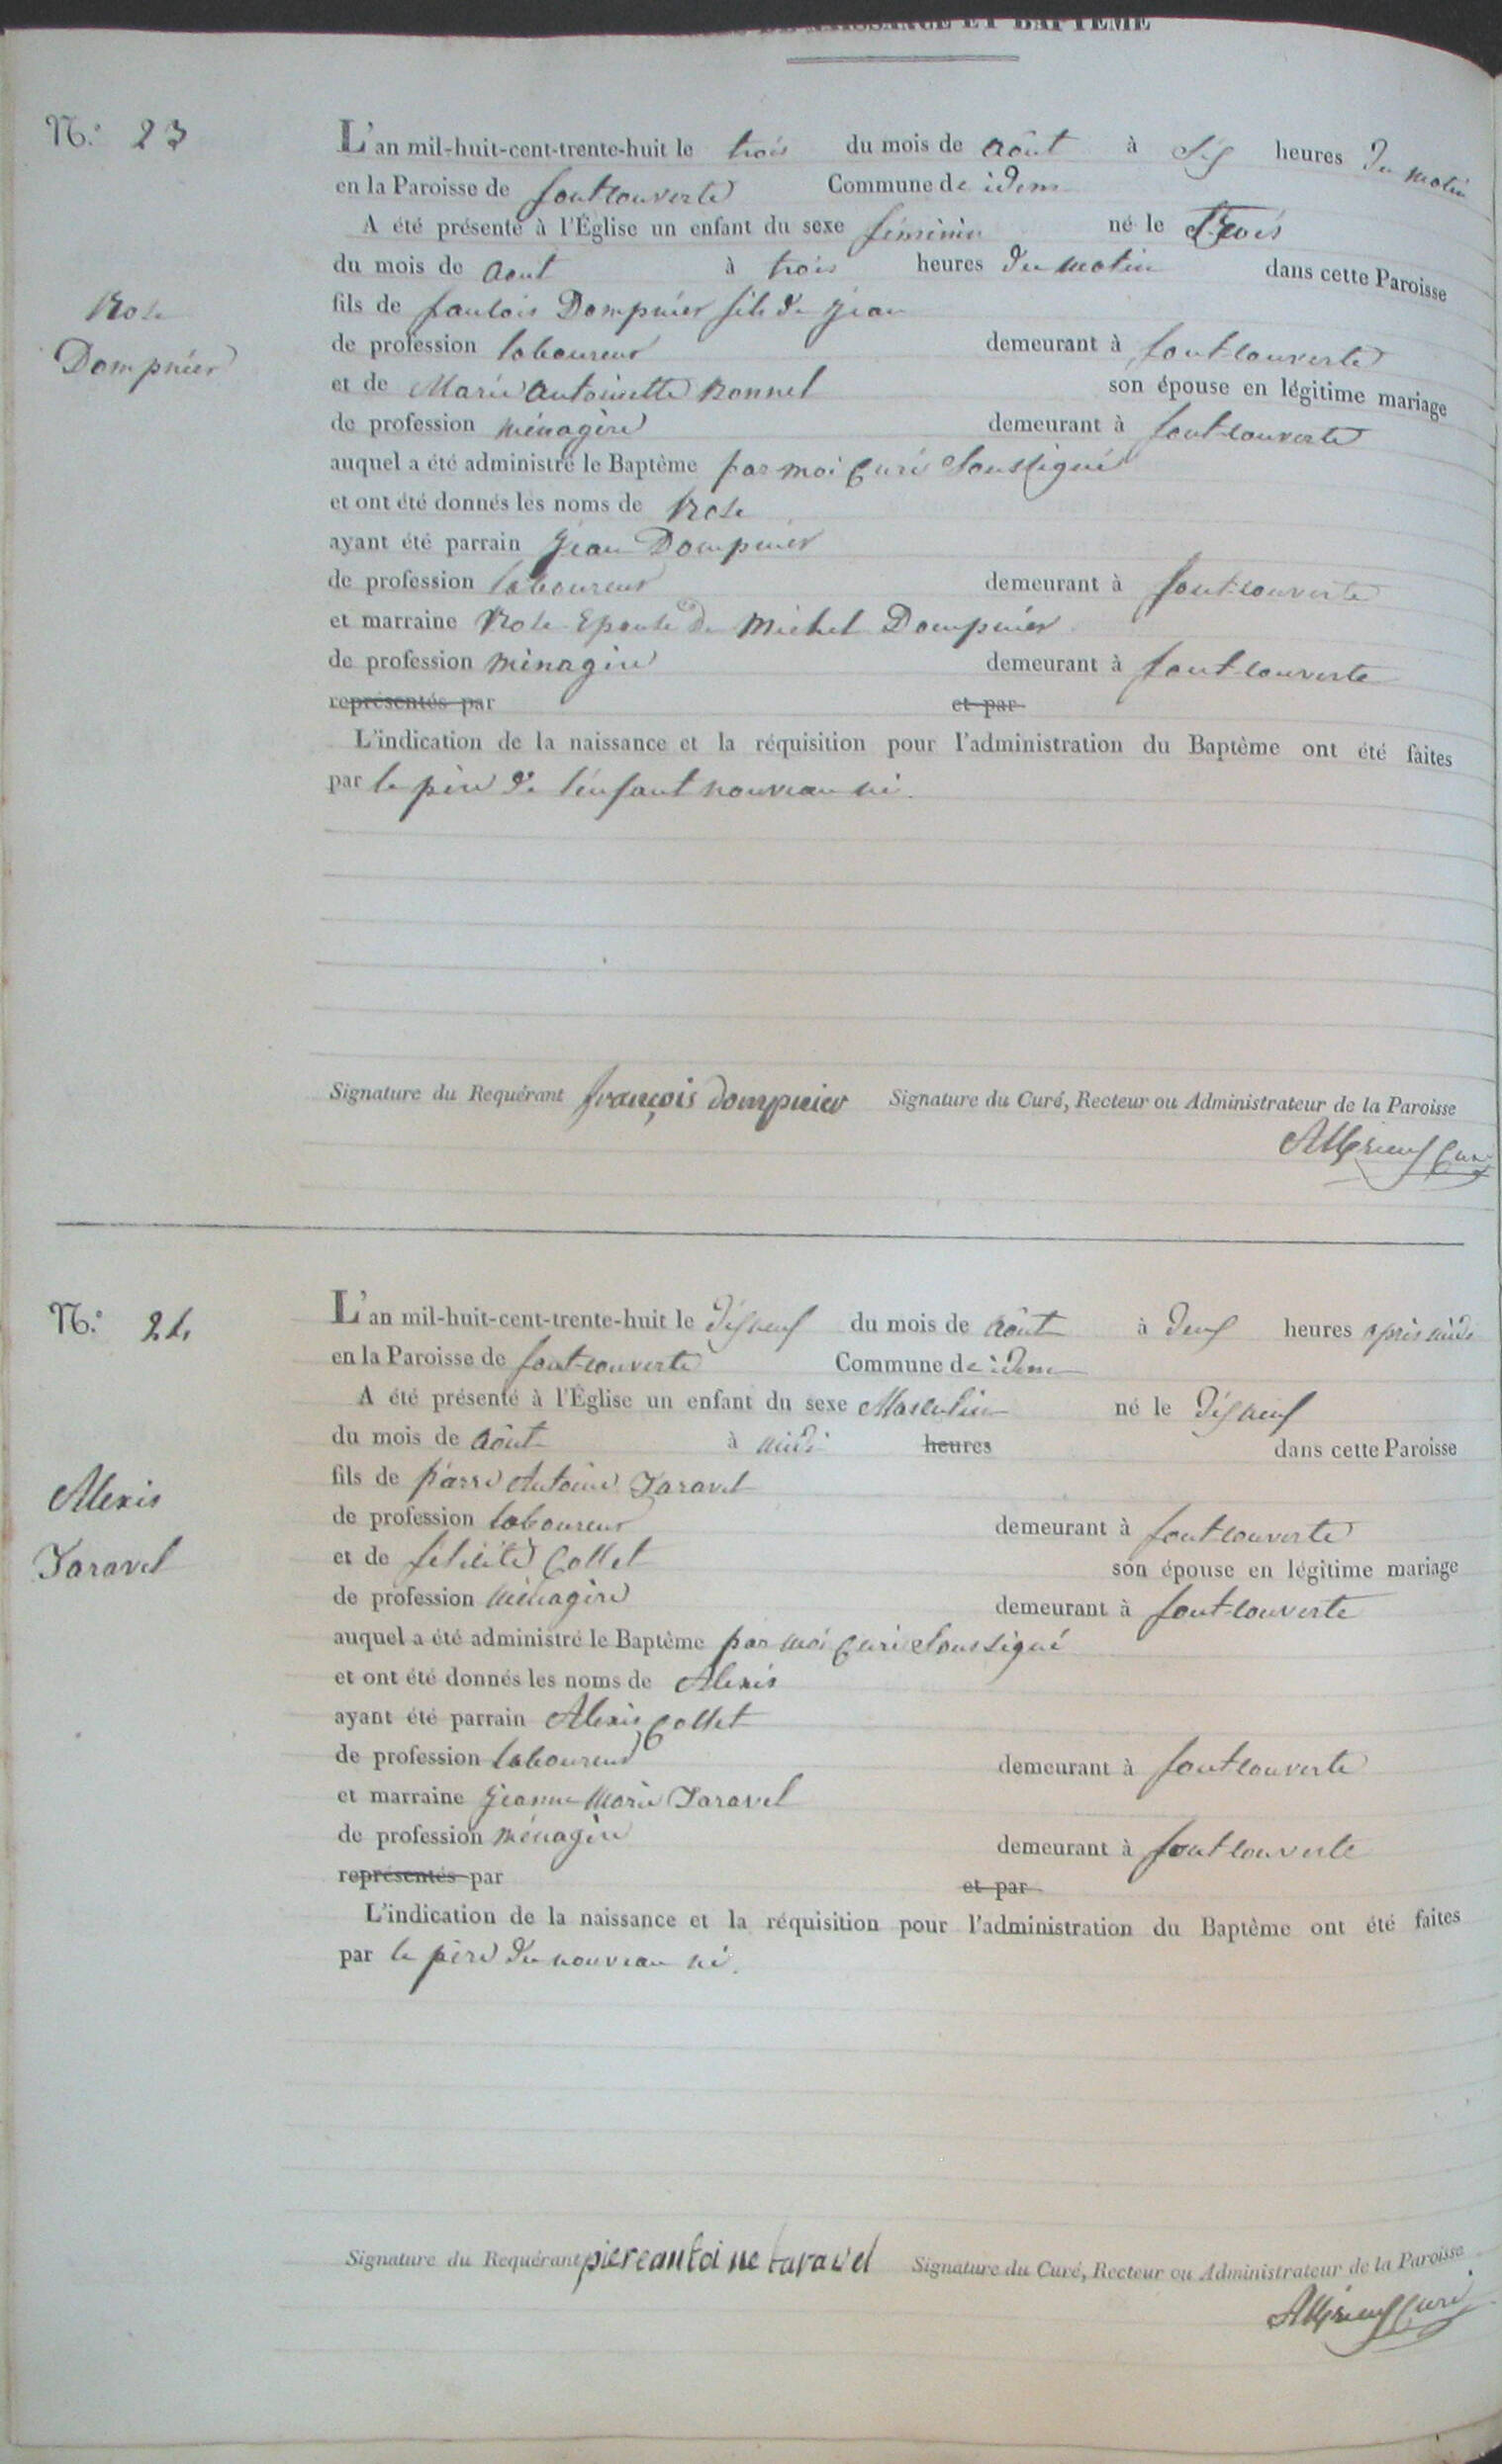 ET BAPTÊME
N.° 23
L'an mil-huit-cent-trente-huit le trois du mois de Août à Six heures Du matin
en la Paroisse de fontcouverte Commune de idem
A été présenté à l'Église un enfant du sexe féminin né le trois
du mois de Aout à trois heures Du matin dans cette Paroisse
Rose
Dompnier
fils de Dompnier fils de Jean
de profession laboureur demeurant à fontcouverte
et de Marie Antoinette Bonnel son épouse en légitime mariage
de profession ménagère demeurant à fontcouverte
auquel a été administré le Baptême par moi Curé Soussigné
et ont été donnés les noms de Rose
ayant été parrain Jean Dompnier
de profession laboureur demeurant à fontcouverte
et marraine Rose Epouse De Michel Dompnier
de profession ménagère demeurant à fontcouverte
représentés par et par
L'indication de la naissance et la réquisition pour l'administration du Baptême ont été faites
par le père De l'enfant nouveau né.
Signature du Requérant françois dompnier Signature du Curé, Recteur ou Administrateur de la Paroisse
Curé
N.° 24
L'an mil-huit-cent-trente-huit le Disneuf du mois de Août à Deux heures après midi
en la Paroisse de fontcouverte Commune de idem
A été présenté à l'Église un enfant du sexe Masculin né le Disneuf
du mois de Août à midi heures dans cette Paroisse
Alexis
Taravel
fils de pierre Antoine Taravel
de profession laboureur demeurant à fontcouverte
et de félicité Collet son épouse en légitime mariage
de profession ménagère demeurant à fontcouverte
auquel a été administré le Baptême par moi Curé Soussigné
et ont été donnés les noms de Alexis
ayant été parrain Alexis Collet
de profession laboureur demeurant à fontcouverte
et marraine Jeanne Marie Taravel
de profession ménagère demeurant à fontcouverte
représentés par et par
L'indication de la naissance et la réquisition pour l'administration du Baptême ont été faites
par le père Du nouveau né.
Signature du Requérant piereantoine taravel Signature du Curé, Recteur ou Administrateur de la Paroisse
Curé